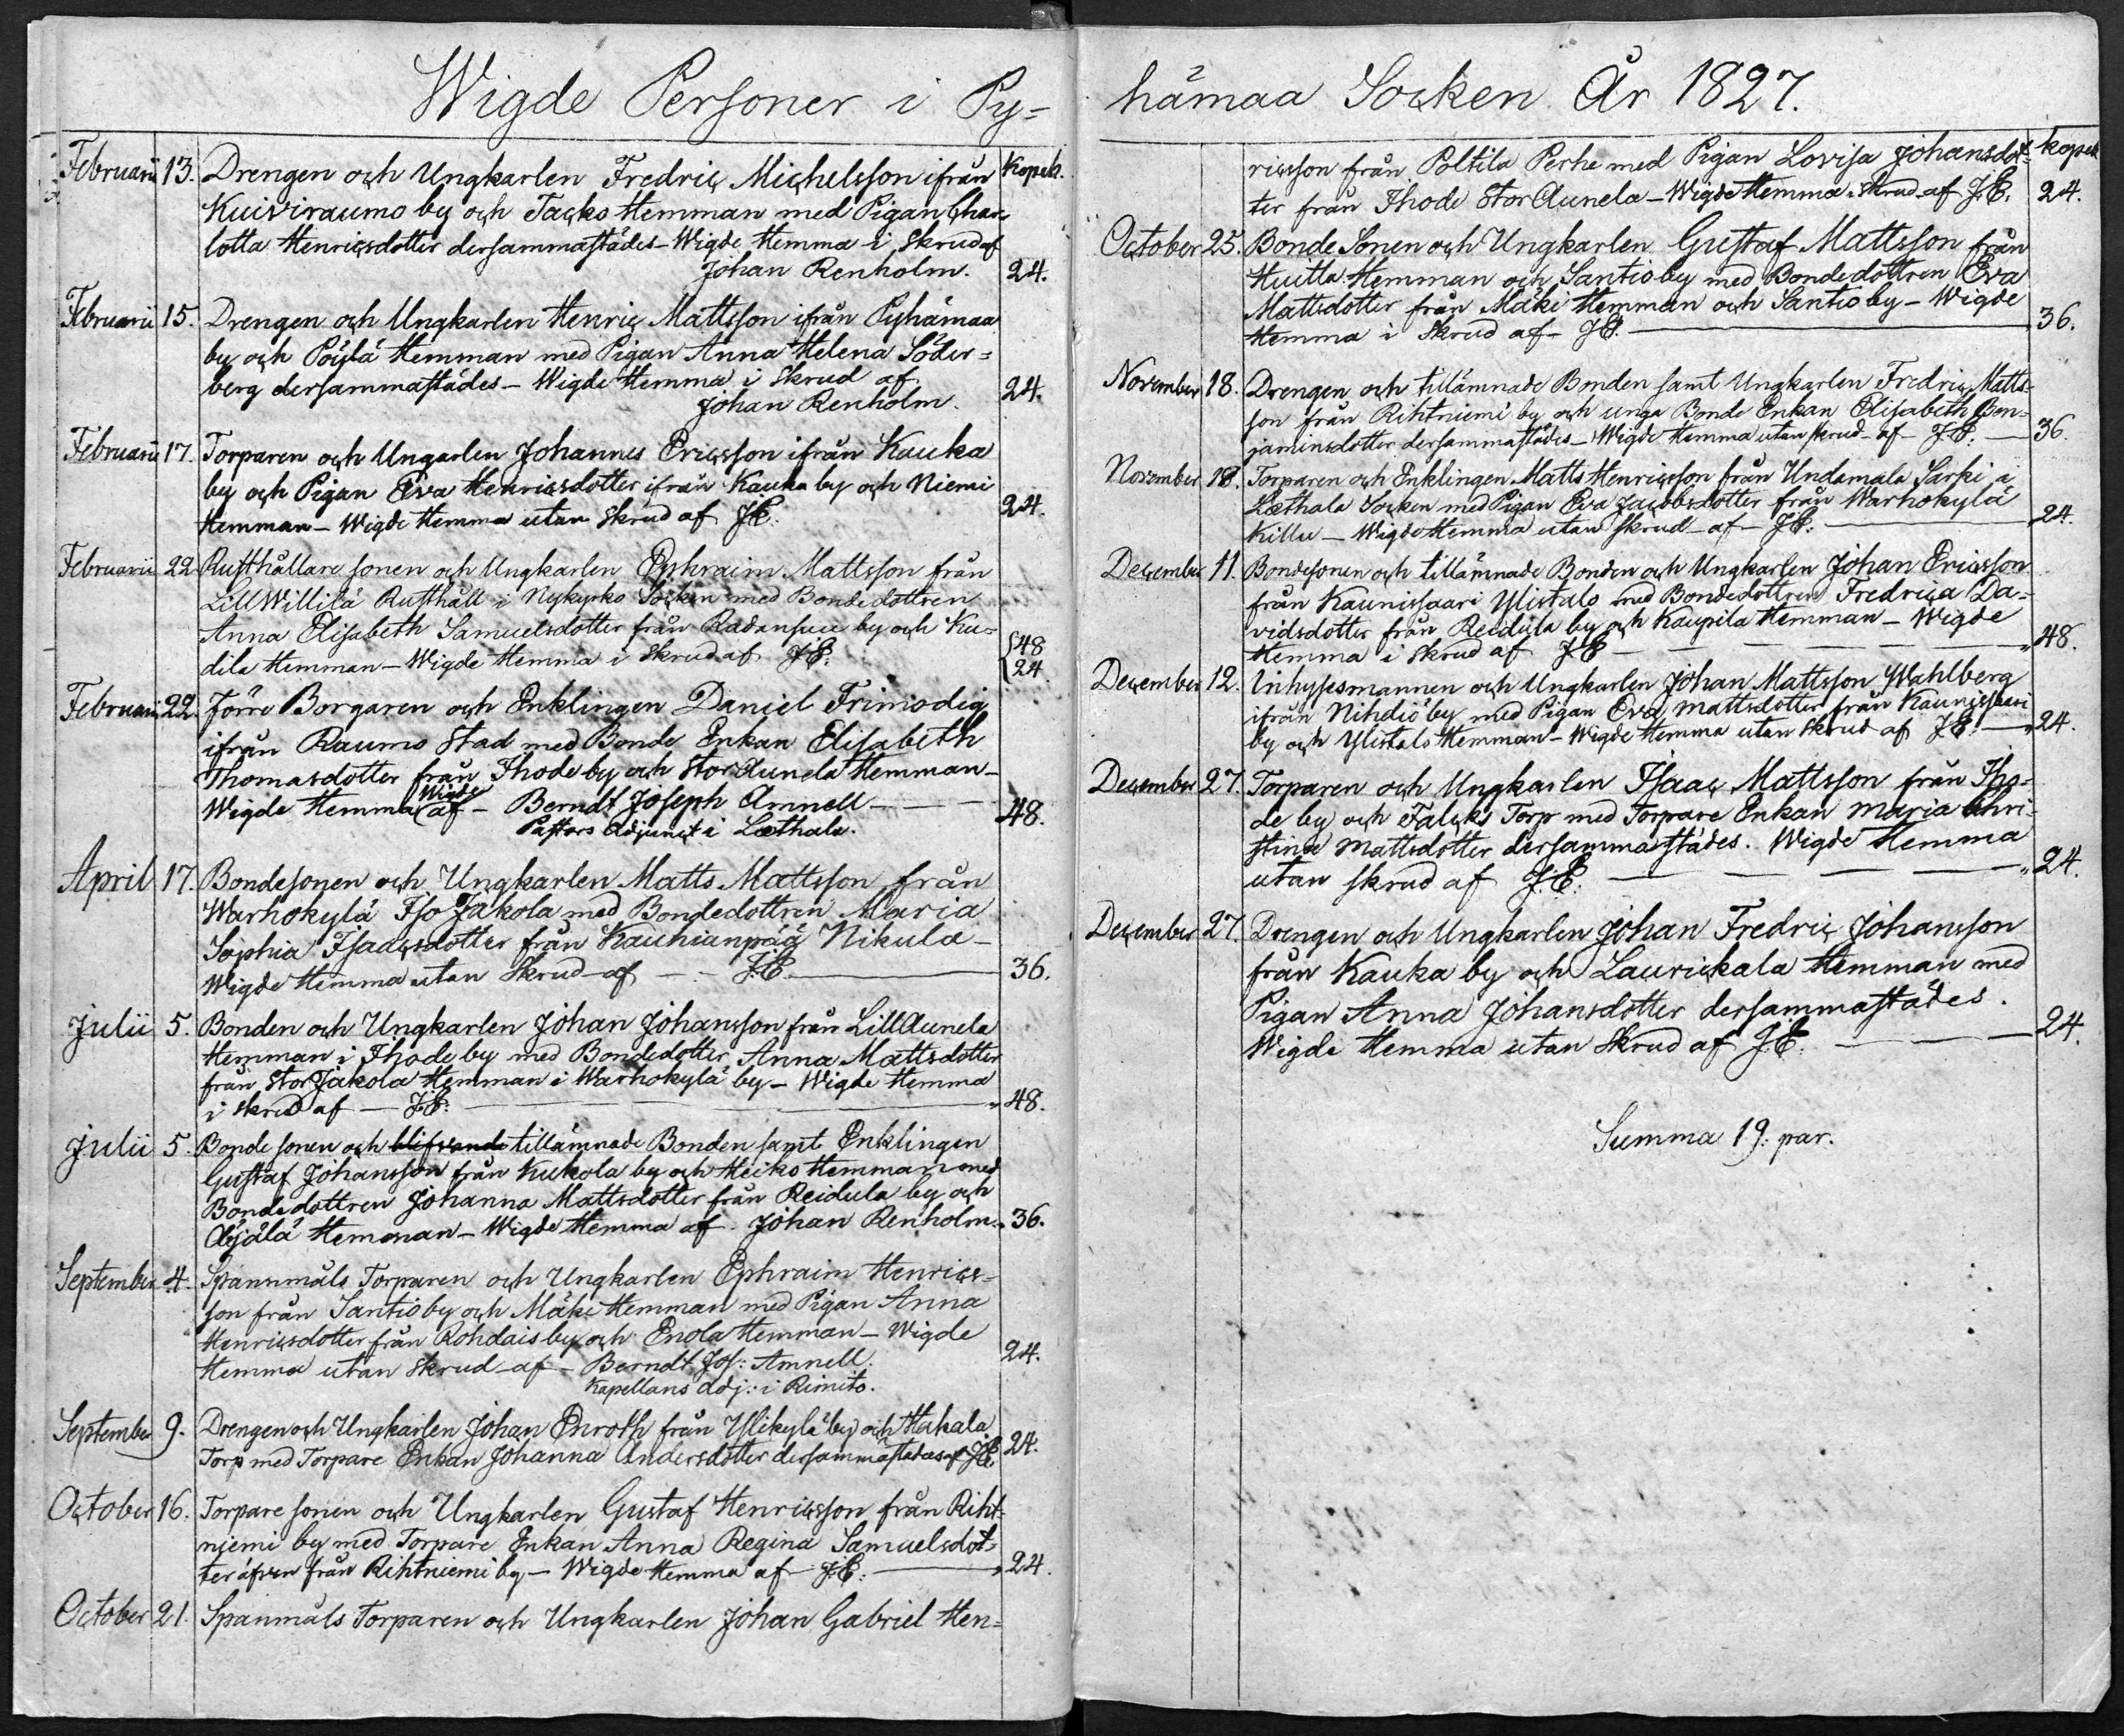 Wigde Personer i Py=
Februarii 13. Drengen och Ungkarlen Fredric Michelsson ifrån Kopek.
Kuiviraumo by och Jacko Hemman med Pigan Char=
lotta Henricsdotter dersammastädes – Wigde Hemma i Skrud af
Johan Renholm. 24.
Februarii 15. Drengen och Ungkarlen Henric Mattsson ifrån Pyhämaa
by och Pöylä Hemman med Pigan Anna Helena Söder=
berg dersammastädes – Wigde Hemma i Skrud af. 24.
Johan Renholm.
Februarii 17. Torparen och Ungarlen Johannes Ericsson ifrån Kauka
by och Pigan Eva Henricsdotter ifrån Kauka by och Niemi
Hemman – Wigde Hemma utan Skrud af J.E. 24.
Februarii 22 Rusthållare sonen och Ungkarlen Ephraim Mattsson från
Lill Willilä Rusthåll i Nykyrko Socken med Bondedottren
Anna Elisabeth Samuelsdotter från Radansuu by och Ku= {48
dila Hemman – Wigde Hemma i Skrud af J.E. {24
Februarii 22. Förre Borgaren och Enklingen Daniel Frimodig
ifrån Raumo Stad med Bonde Enkan Elisabeth
Thomasdotter från Ihode by och Stor Aunela Hemman –
Wigde Hemma Wigde af – Berndt Joseph Amnell – – – 48.
Pastors Adjunct i Lethala.
April 17. Bondesonen och Ungkarlen Matts Mattsson från
Warhokylä Iso Jakola med Bondedottren Maria
Sophia Isacsdotter från Kauhianpää Nikula –
Wigde Hemma utan Skrud af – – J.E. 36.
Julii 5. Bonden och Ungkarlen Johan Johansson från Lill Aunela
Hemman i Ihode by med Bondedotter Anna Mattsdotter
från Stor Jakola Hemman i Warhokylä by – Wigde Hemma
i Skrud af – J.E. „48.
Julii 5. Bonde sonen och blifvande tillämnade Bonden samt Enklingen
Gustaf Johansson från Kukola by och Heiko Hemman med
Bondedottren Johanna Mattsdotter från Reidula by och
Äijälä Hemman – Wigde Hemma af Johan Renholm. „36.
September 4. Spannmåls Torparen och Ungkarlen Ephraim Henrics=
son från Santio by och Mäki Hemman med Pigan Anna
Henricsdotter från Rohdais by och Enola Hemman – Wigde
Hemma utan Skrud af – Berndt Jos: Amnell. 24.
Kapellans adj: i Rimito.
September 9. Drengen och Ungkarlen Johan Enroth från Ylikylä by och Hakala
Torp med Torpare Enkan Johanna Andersdotter dersammastädes af J.E. 24.
October 16. Torpare sonen och Ungkarlen Gustaf Henricsson från Riht=
niemi by med Torpare Enkan Anna Regina Samuelsdot=
ter äfven från Rihtniemi by – Wigde Hemma af J.E. „24.
October 21. Spanmåls Torparen och Ungkarlen Johan Gabriel Hen=
hämaa Socken År 1827.
ricsson från Poltila Perhe med Pigan Lovisa Johansdot= kopek
ter från Ihode Stor Aunela – Wigde Hemma i Skrud af J.E. 24.
October 25. Bonde Sonen och Ungkarlen Gustaf Mattsson från
Huitla Hemman och Santio by med Bondedottren Eva
Mattsdotter från Mäki Hemman och Santio by – Wigde
Hemma i Skrud af – J.E. 36.
November 18. Drengen och tillämnade Bonden samt Ungkarlen Fredric Matts=
son från Rihtniemi by och unga Bonde Enkan Elisabeth Ben=
jaminsdotter dersammastädes – Wigde Hemma utan Skrud af – J.E. – 36.
November 18. Torparen och Enklingen Matts Henricsson från Undamala Sarki i
Lethala Socken med Pigan Eva Jacobsdotter från Warhokylä
Killu – Wigde Hemma utan Skrud – af – J.E. 24.
December 11. Bondesonen och tillämnade Bonden och Ungkarlen Johan Ericsson
från Kaunissaari Ylistalo med Bondedottren Fredrica Da=
vidsdotter från Reidula by och Kaupila Hemman – Wigde
Hemma i Skrud af J.E. – – – „48.
December 12. Inhysesmannen och Ungkarlen Johan Mattsson Wahlberg
ifrån Nihdiö by med Pigan Eva Mattsdotter från Kaunissari
by och Ylistalo Hemman – Wigde Hemma utan Skrud af J.E. – „24.
December 27. Torparen och Ungkarlen Isaac Mattsson från Iho=
de by och Falcks Torp med Torpare Enkan Maria Chri=
stina Mattsdotter dersammastädes. Wigde Hemma
utan Skrud af J.E. – – – „24.
December 27. Drengen och Ungkarlen Johan Fredric Johansson
från Kauka by och Laurickala Hemman med
Pigan Anna Johansdotter dersammastädes.
Wigde Hemma utan Skrud af J.E. – – – 24.
Summa 19. par.